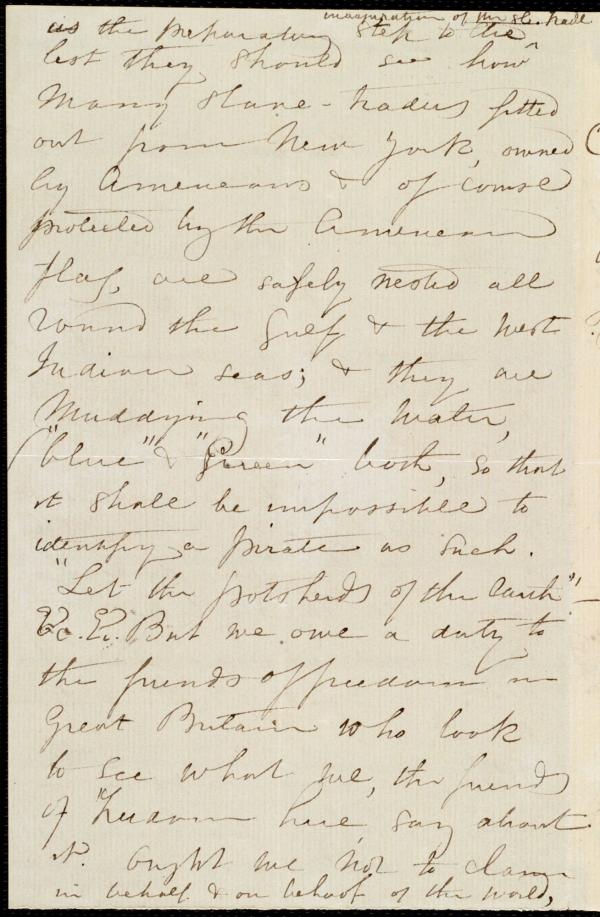 inauguration of the sla. trade
as the preparatory step to the ^
lest they should see how
many slave-traders fitted
out from New York, owned
by Americans & of course
protected by the American
flag, are safely nested all
round the Gulf & the West
Indian seas; & they are
muddying the water,
("blue" & "Green" both, so that
it shall be impossible to
identify a pirate as such.
"Let the potsherds of the earth"—
&c. &c. But we owe a duty to
the friends of freedom in
Great Britain who look
to see what we, the friends
of freedom here, say about
it. Ought we not to claim
in behalf & on behoof of the world,